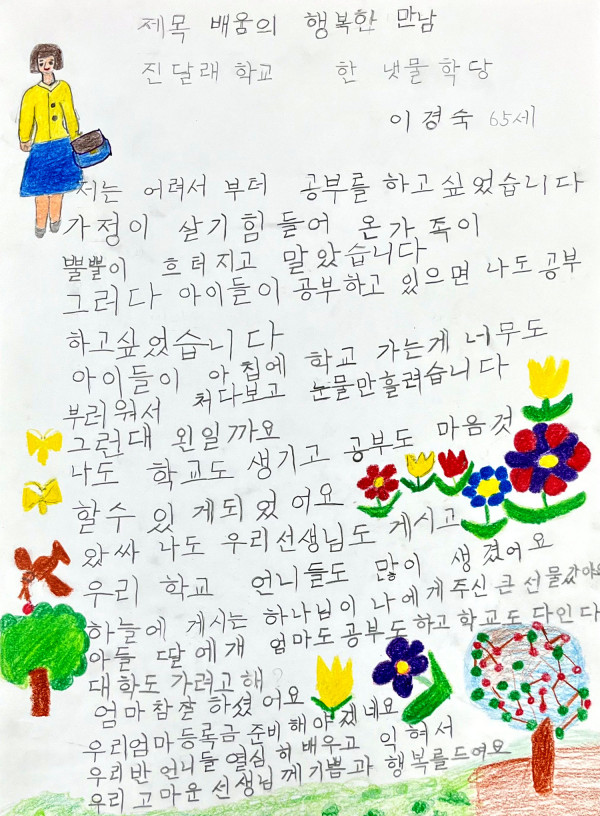 제목 배움의 행복한 만남
진달래 학교 한 냇물 학당
이경숙 65세
저는 어려서 부터 공부를 하고 싶었습니다
가정이 살기 힘들어 온가족이
뿔뿔이 흐터지고 말았습니다
그러다 아이들이 공부하고 있으면 나도 공부
하고싶었습니다
아이들이 아침에 학교 가는게 너무도
부러워서 처다보고 눈물만흘렸습니다
그런대 왼일까요
나도 학교도 생기고 공부도 마음것
할수 있게되었어요
왔싸 나도 우리선생님도 게시고
우리 학교 언니들도 많이 생겼어요
하늘에 게시는 하나님이 나에게주신 큰 선물갔아요
아들 딸에개 엄마도 공부도하고 학교도 다인다
대학도 가려고해?
엄마참잘 하셨어요
우리엄마등록금 준비해야겠네요
우리반 언니들 열심히 배우고 익혀서
우리 고마운 선생님께기쁨과 행복를드여요